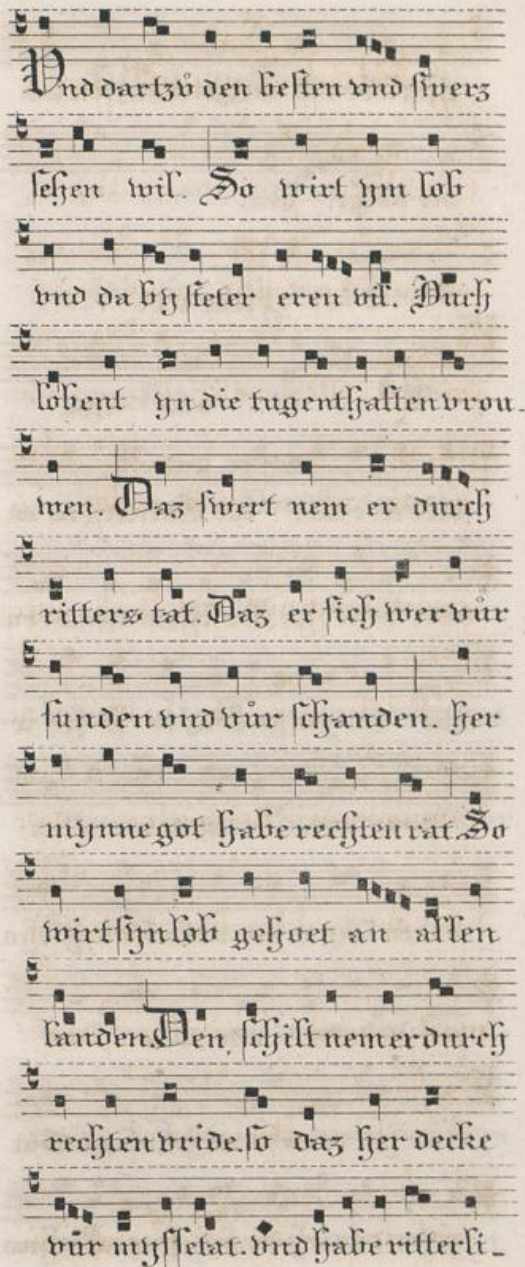 Vnd dartzů den besten vnd swerz
sehen wil. So wirt ym lob
vnd da by steter eren vil. Duch
lobent yn die tugenthaften vrou-
wen. Daz swert nem er durch
ritters tat. Daz er sich wer vůr
sunden vnd vůr schanden. her
mynne got habe rechten rat. So
wirt syn lob gehoet an allen
landen. Den schilt nem er durch
rechten vride. so daz her decke
vůr myssetat. vnd habe ritterli-